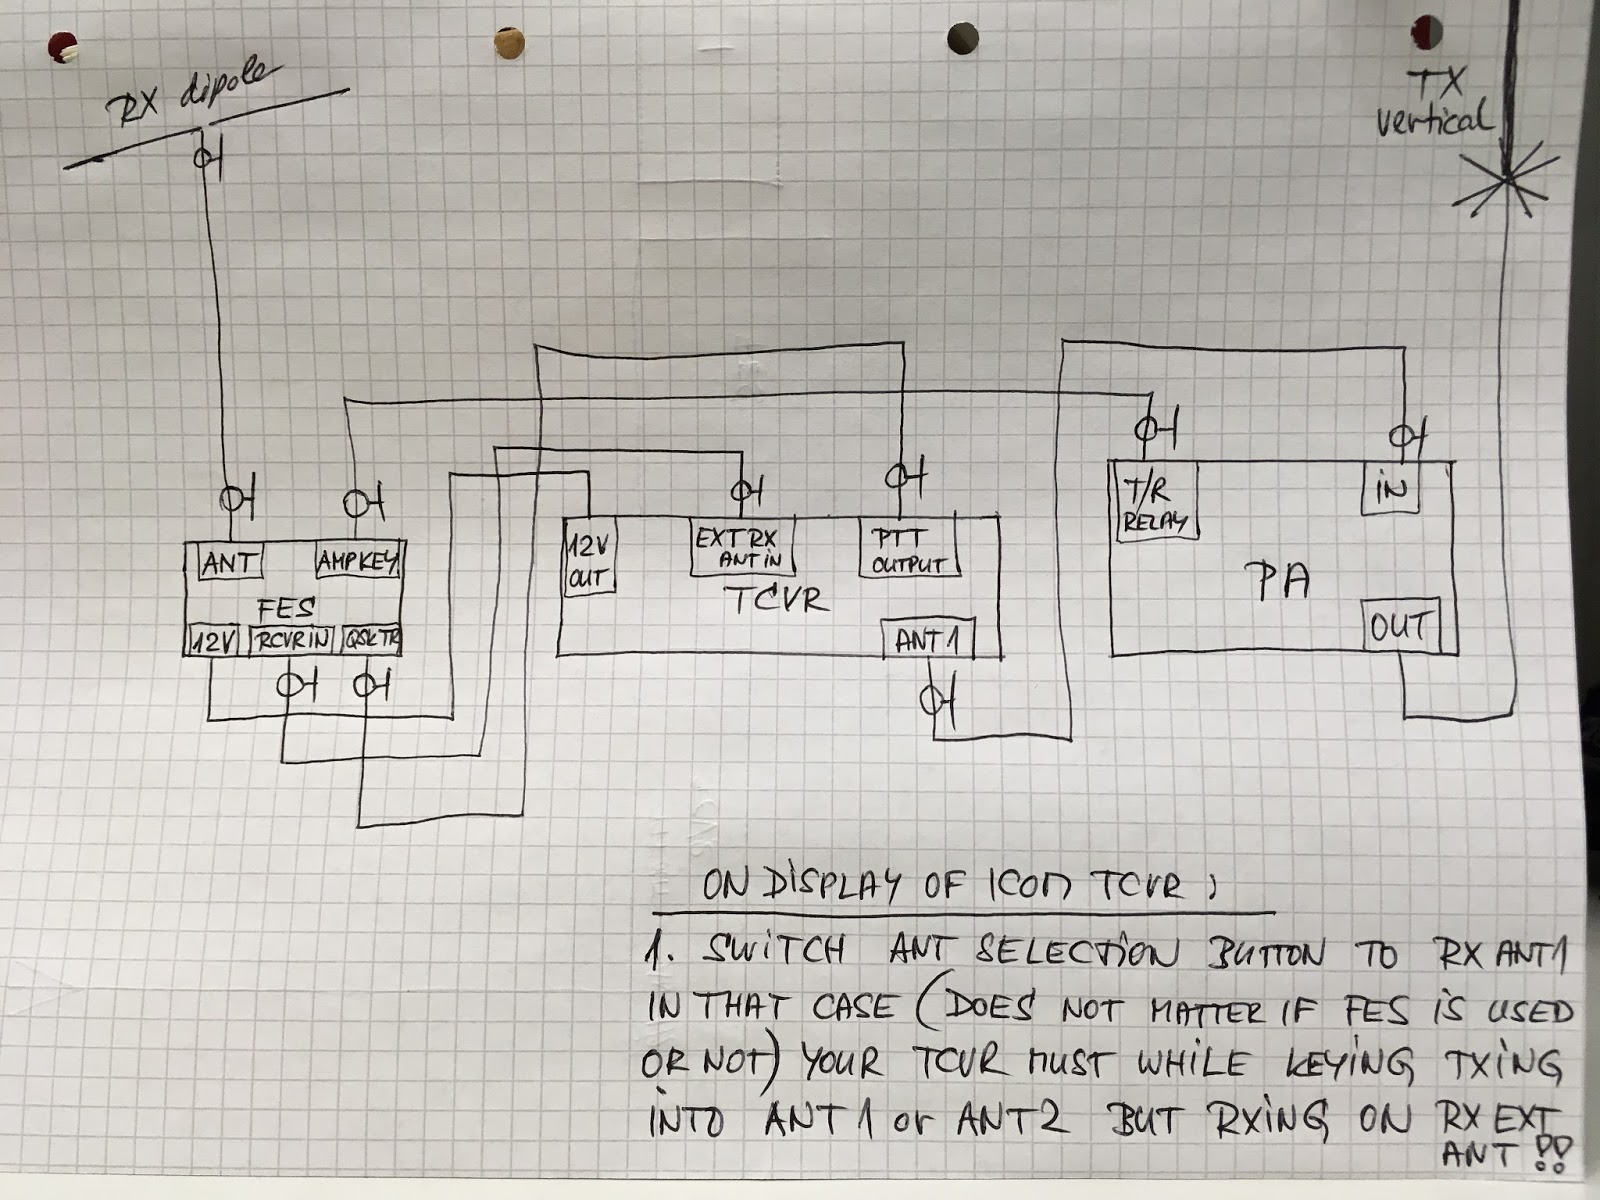 RX dipole
TX
vertical
ANT
AMPKEY
FES
12V
RCVRIN
QSKTR
12V
OUT
EXT RX
ANT IN
PTT
OUTPUT
TCVR
ANT1
T/R
RELAY
IN
PA
OUT
ON DISPLAY OF ICOM TCVR :
1. SWITCH ANT SELECTION BUTTON TO RX ANT1
IN THAT CASE (DOES NOT MATTER IF FES IS USED
OR NOT) YOUR TCVR MUST WHILE KEYING TXING
INTO ANT 1 or ANT 2 BUT RXING ON RX EXT
ANT !!